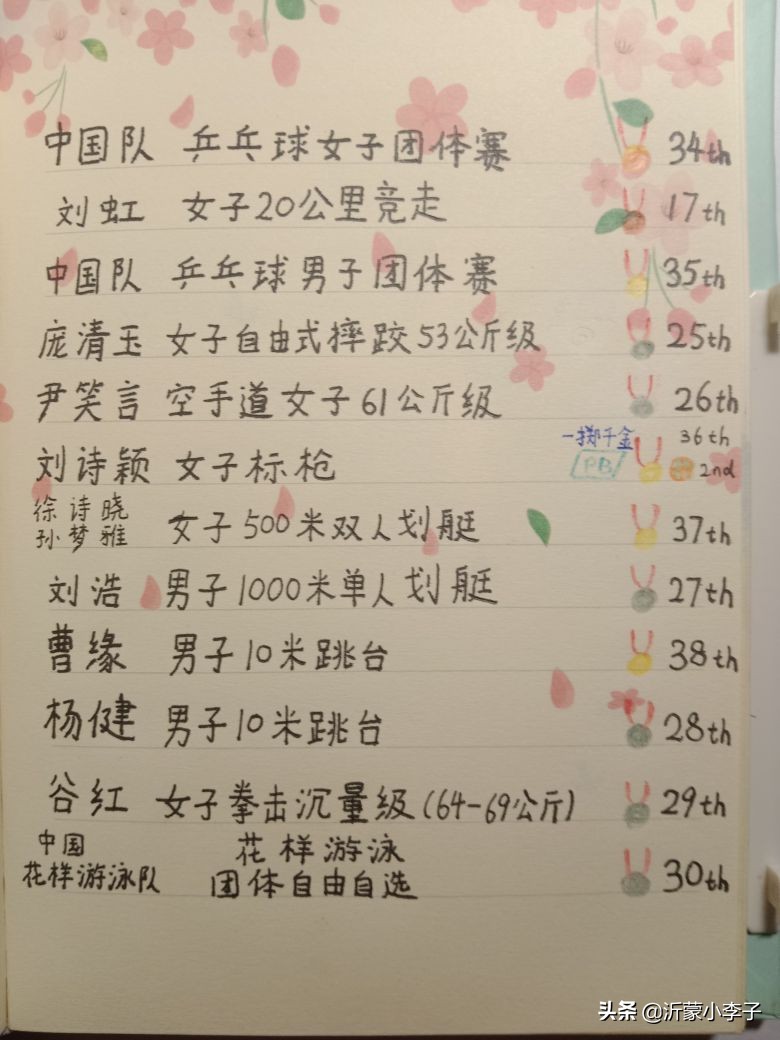 中国队 乒乓球女子团体赛 34th
刘虹 女子20公里竞走 17th
中国队 乒乓球男子团体赛 35th
庞清玉 女子自由式摔跤53公斤级 25th
尹笑言 空手道女子61公斤级 26th
一掷千金 36th
刘诗颖 女子标枪 PB 2nd
徐诗晓
孙梦雅 女子500米双人划艇 37th
刘浩 男子1000米单人划艇 27th
曹缘 男子10米跳台 38th
杨健 男子10米跳台 28th
谷红 女子拳击沉量级(64-69公斤) 29th
中国 花样游泳
花样游泳队 团体自由自选 30th
头条 @沂蒙小李子